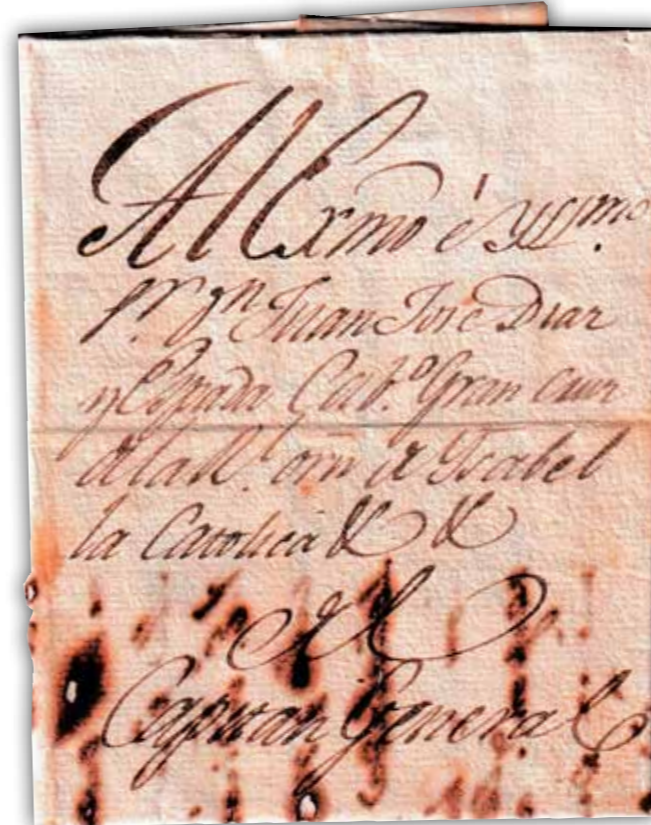 Al Exmo é Yllmo.
Sr. Dn Juan José Diaz
y Espada Cab.o Gran Cruz
de la Rl. orn de Ysabel
la Catolica & &
El
Capitan General